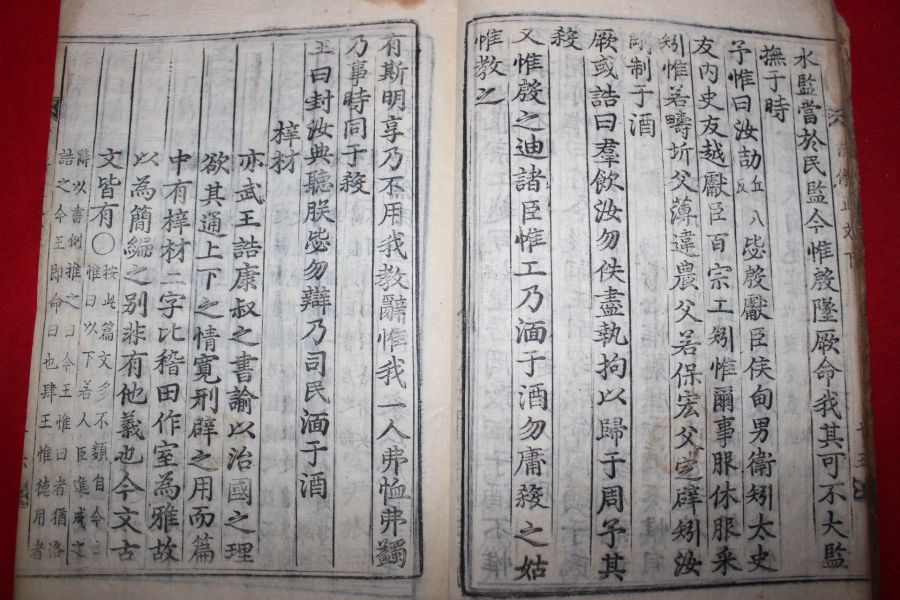 水監當於民監今惟殷墜厥命我其可不大監
撫于時
予惟曰汝劼丘八反毖殷獻臣侯甸男衛矧太史
友內史友越獻臣百宗工矧惟爾事服休服采
矧惟若疇圻父薄違農父若保宏父定辟矧汝
剛制于酒
厥或誥曰羣飮汝勿佚盡執拘以歸于周予其
殺
又惟殷之迪諸臣惟工乃湎于酒勿庸殺之姑
惟教之
有斯明享乃不用我教辭惟我一人弗恤弗蠲
乃事時同于殺
王曰封汝典聽朕毖勿辯乃司民湎于酒
梓材
亦武王誥康叔之書諭以治國之理
欲其通上下之情寬刑辟之用而篇
中有梓材二字比稽田作室為雅故
以為簡編之別非有他義也今文古
文皆有○按此篇文多不類自今王
惟曰以下若人臣進戒之
辭以書例推之曰今王惟曰者猶洛
誥之今王即命曰也肆王惟德用者